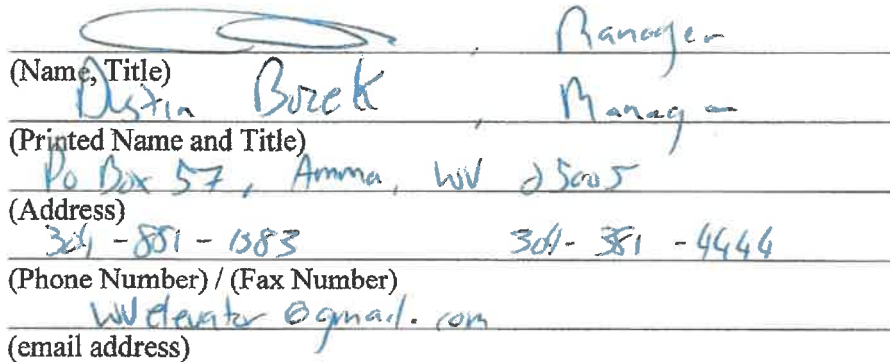 , Manager
(Name, Title)
Dustin Bozek , Manager
(Printed Name and Title)
Po Box 57, Amma, WV 25005
(Address)
304-881-1383 304-381-4444
(Phone Number) / (Fax Number)
wvelevator@gmail.com
(email address)